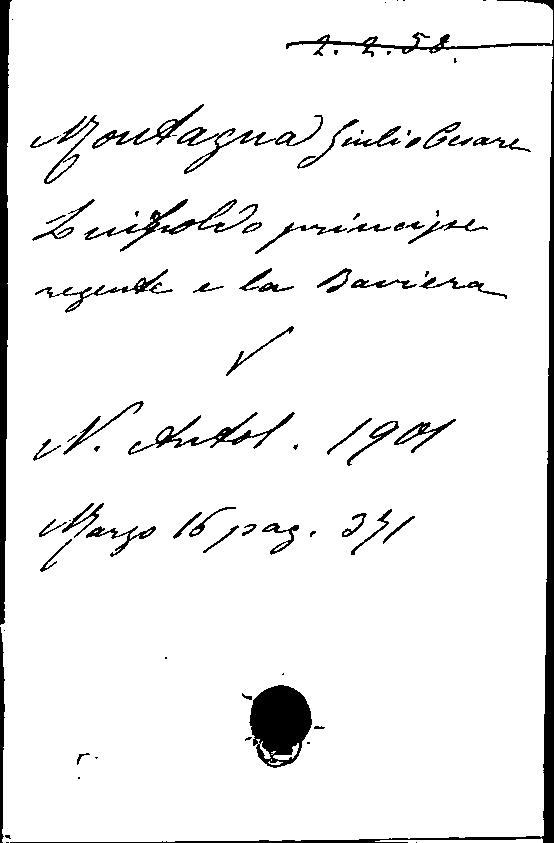 2. 2. 58.
Montagna Giulio Cesare
Luitpoldo principe
regente e la Baviera
✓
N. Antol. 1901
Marzo 16 pag. 371